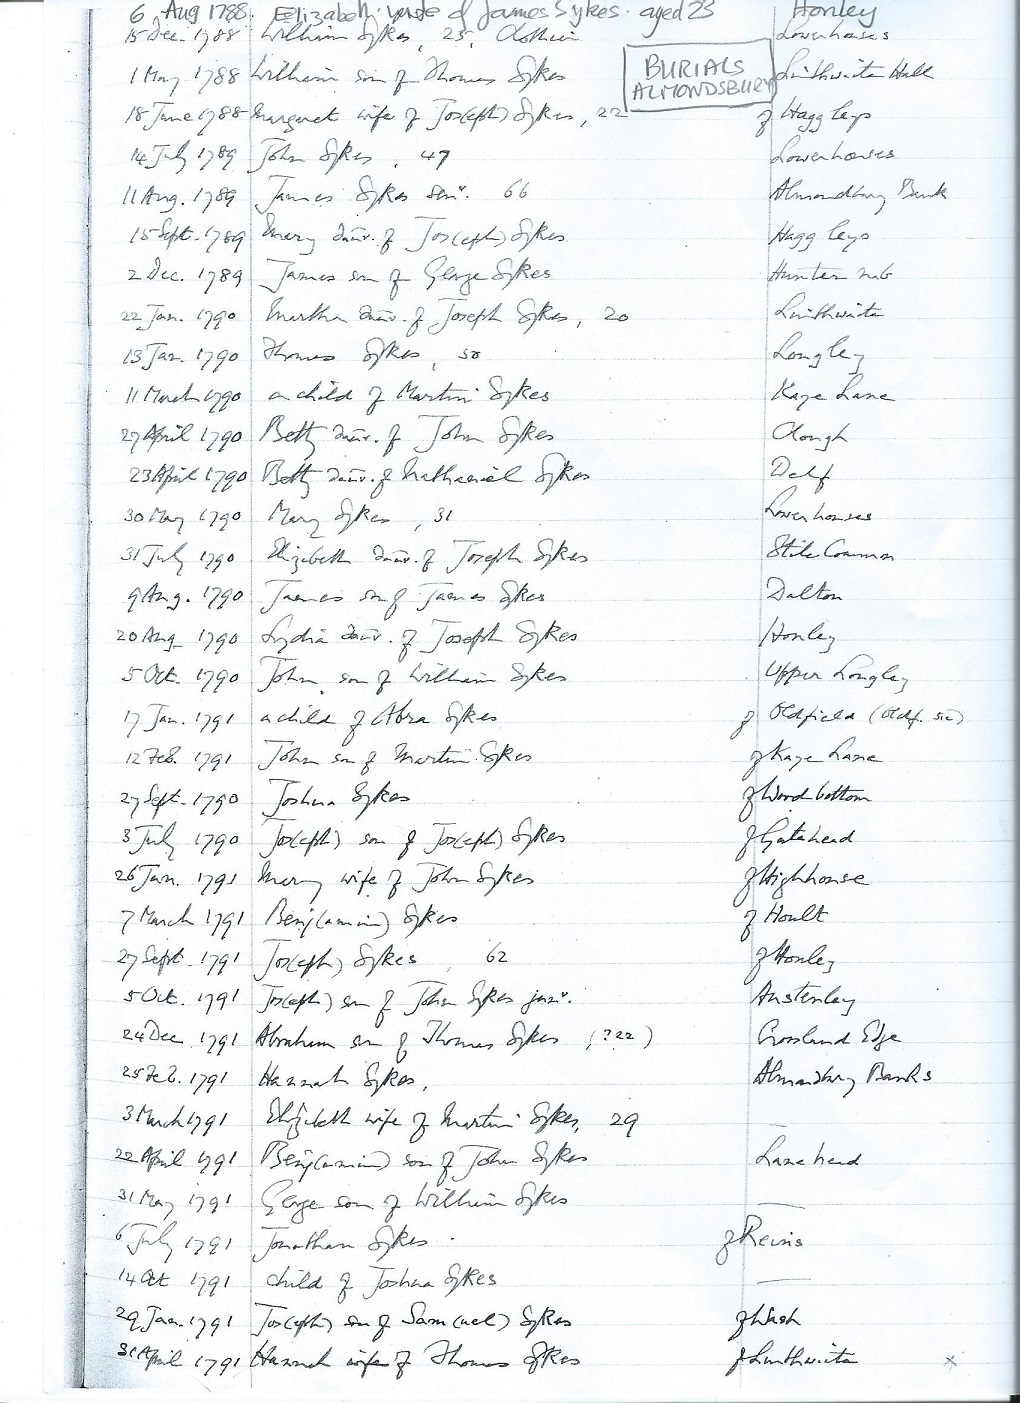 6 Aug 1788 Elizabeth wife of James Sykes aged 23 Honley
15 Dec. 1788 William Sykes, 25, Clothier Lowerhouses
BURIALS
ALMONDSBURY
1 May 1788 William son of Thomas Sykes Linthwaite Hall
18 June 1788 Margaret wife of Jos(eph) Sykes, 22 of Haggleys
14 July 1789 John Sykes, 47 Lowerhouses
11 Aug. 1789 James Sykes senr. 66 Almondbury Bank
15 Sept. 1789 Mary daur. of Jos(eph) Sykes Hagg leys
2 Dec. 1789 James son of George Sykes Hunter nab
22 Jan. 1790 Martha daur. of Joseph Sykes, 20 Linthwaite
13 Jan. 1790 Thomas Sykes, 50 Longley
11 March 1790 a child of Martin Sykes Kaye Lane
27 April 1790 Betty daur. of John Sykes Clough
23 April 1790 Betty daur. of Nathaniel Sykes Delf
30 May 1790 Mary Sykes, 31 Lowerhouses
31 July 1790 Elizabeth daur. of Joseph Sykes Stile Common
9 Aug. 1790 James son of James Sykes Dalton
20 Aug 1790 Lydia daur. of Joseph Sykes Honley
5 Oct. 1790 John son of William Sykes Upper Longley
17 Jan. 1791 a child of Abra Sykes of Oldfield (Oldf. sic)
12 Feb. 1791 John son of Martin Sykes of Kaye Lane
27 Sept. 1790 Joshua Sykes of Woodbottom
3 July 1790 Jos(eph) son of Jos(eph) Sykes of Gatehead
26 Jan. 1791 Mary wife of John Sykes of Highhouse
7 March 1791 Benj(amin) Sykes of Hoult
27 Sept. 1791 Jos(eph) Sykes, 62 of Honley
5 Oct. 1791 Jos(eph) son of John Sykes junr. Austenley
24 Dec 1791 Abraham son of Thomas Sykes (?22) Crossland Edge
25 Feb. 1791 Hannah Sykes, Almondbury Banks
3 March 1791 Elizabeth wife of Martin Sykes, 29 —
22 April 1791 Benj(amin) son of John Sykes Lanehead
31 May 1791 George son of William Sykes —
6 July 1791 Jonathan Sykes. of Reins
14 Oct 1791 child of Joshua Sykes —
29 Jan. 1791 Jos(eph) son of Sam(uel) Sykes of Wash
31 April 1791 Hannah wife of Thomas Sykes of Linthwaite x